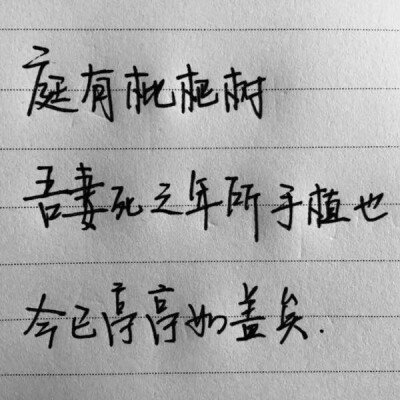 庭有枇杷树
吾妻死之年所手植也
今已亭亭如盖矣.